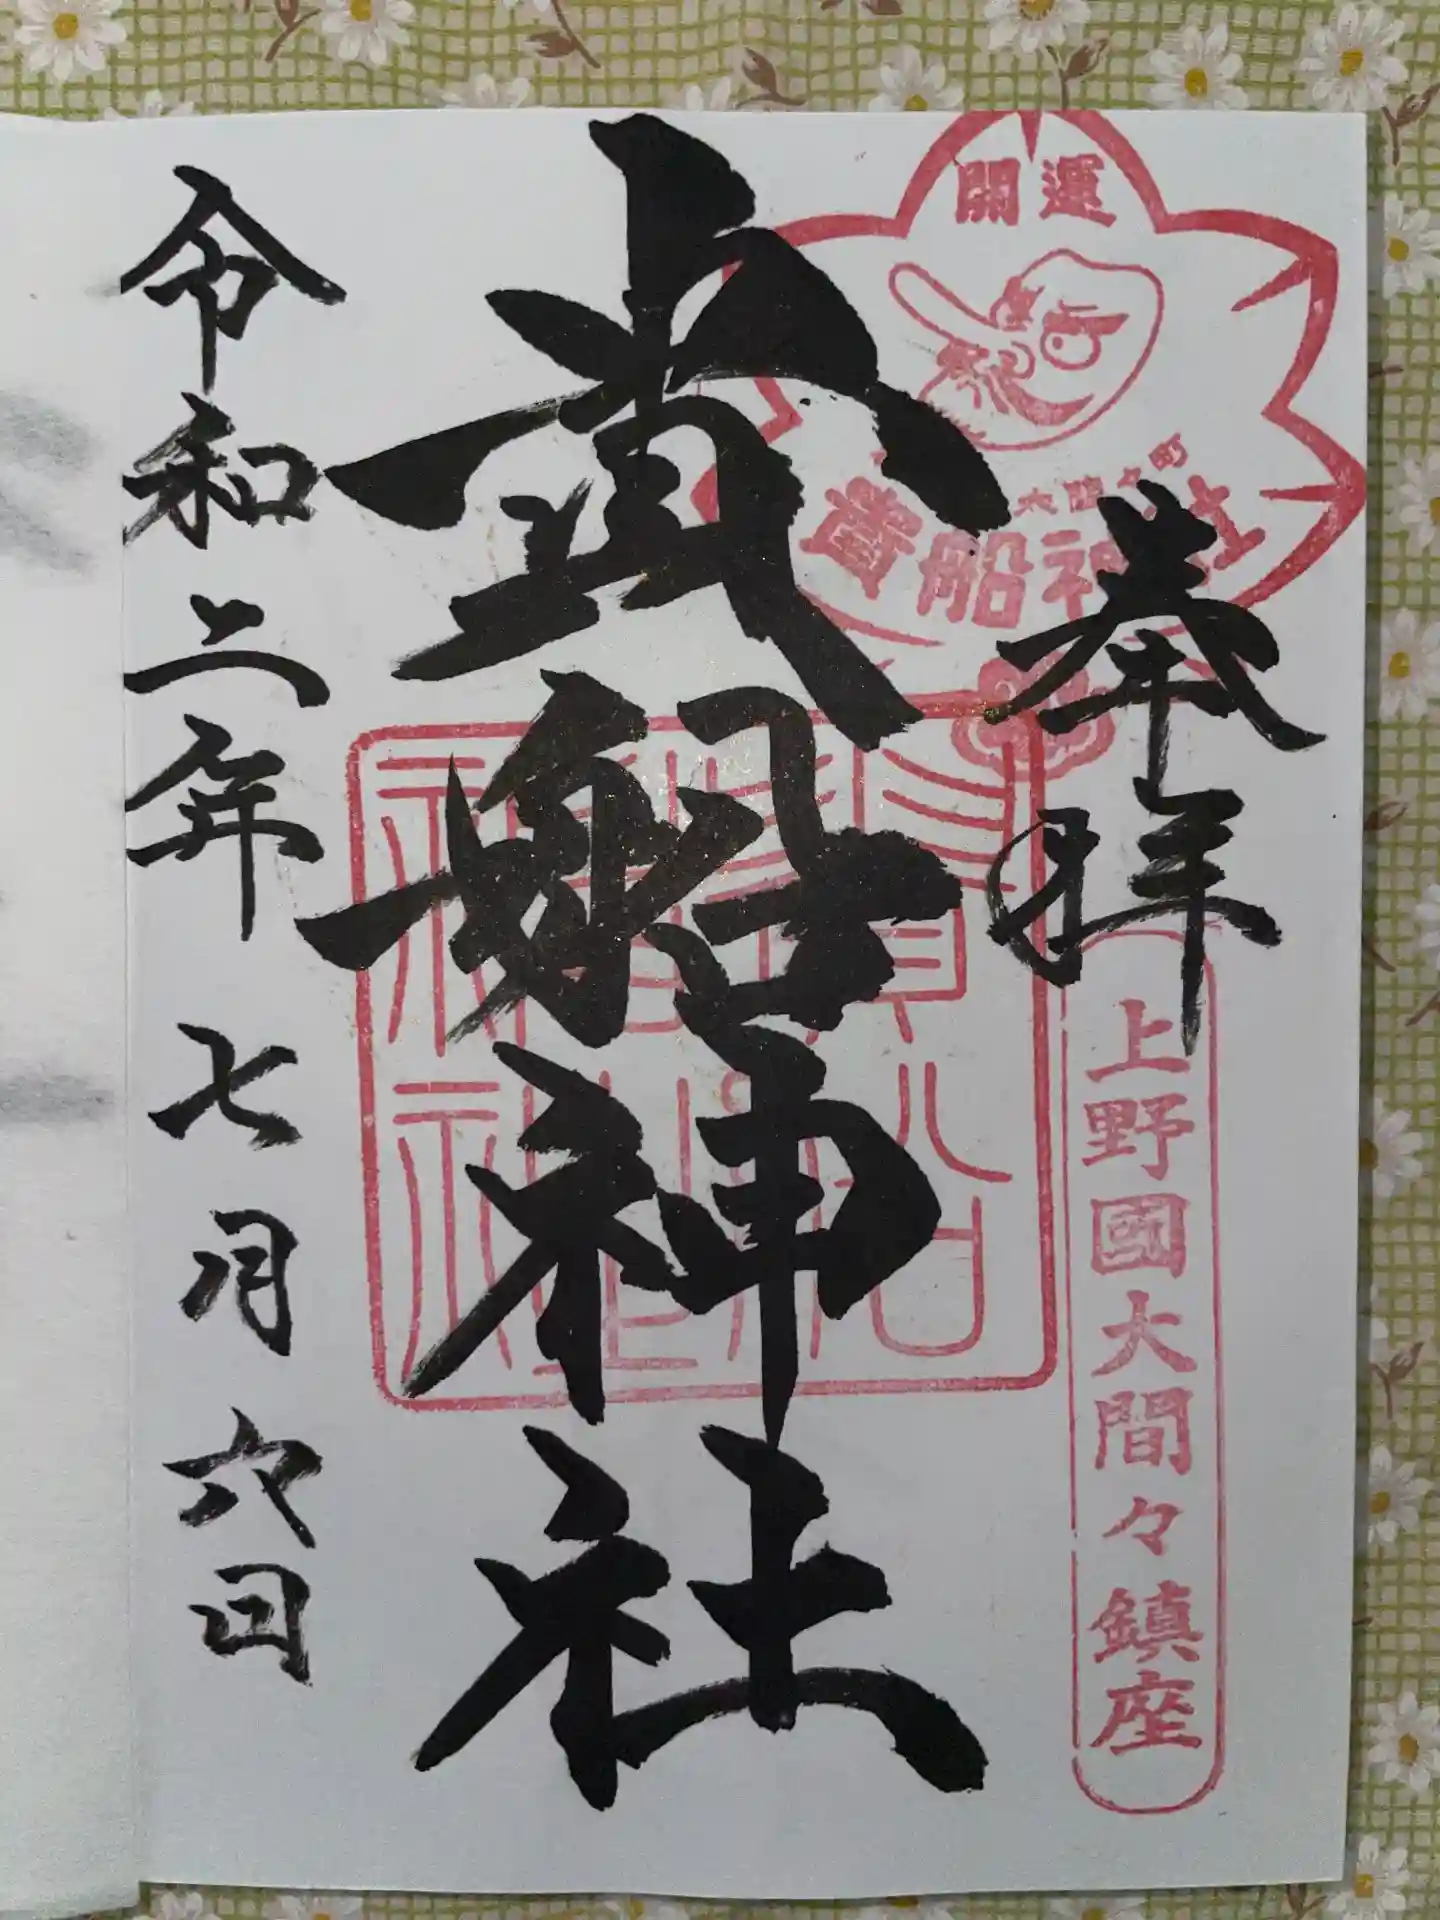 開運
大間々町
貴船神社
奉拝
上野國大間々鎮座
貴船神社
令和二年七月六日